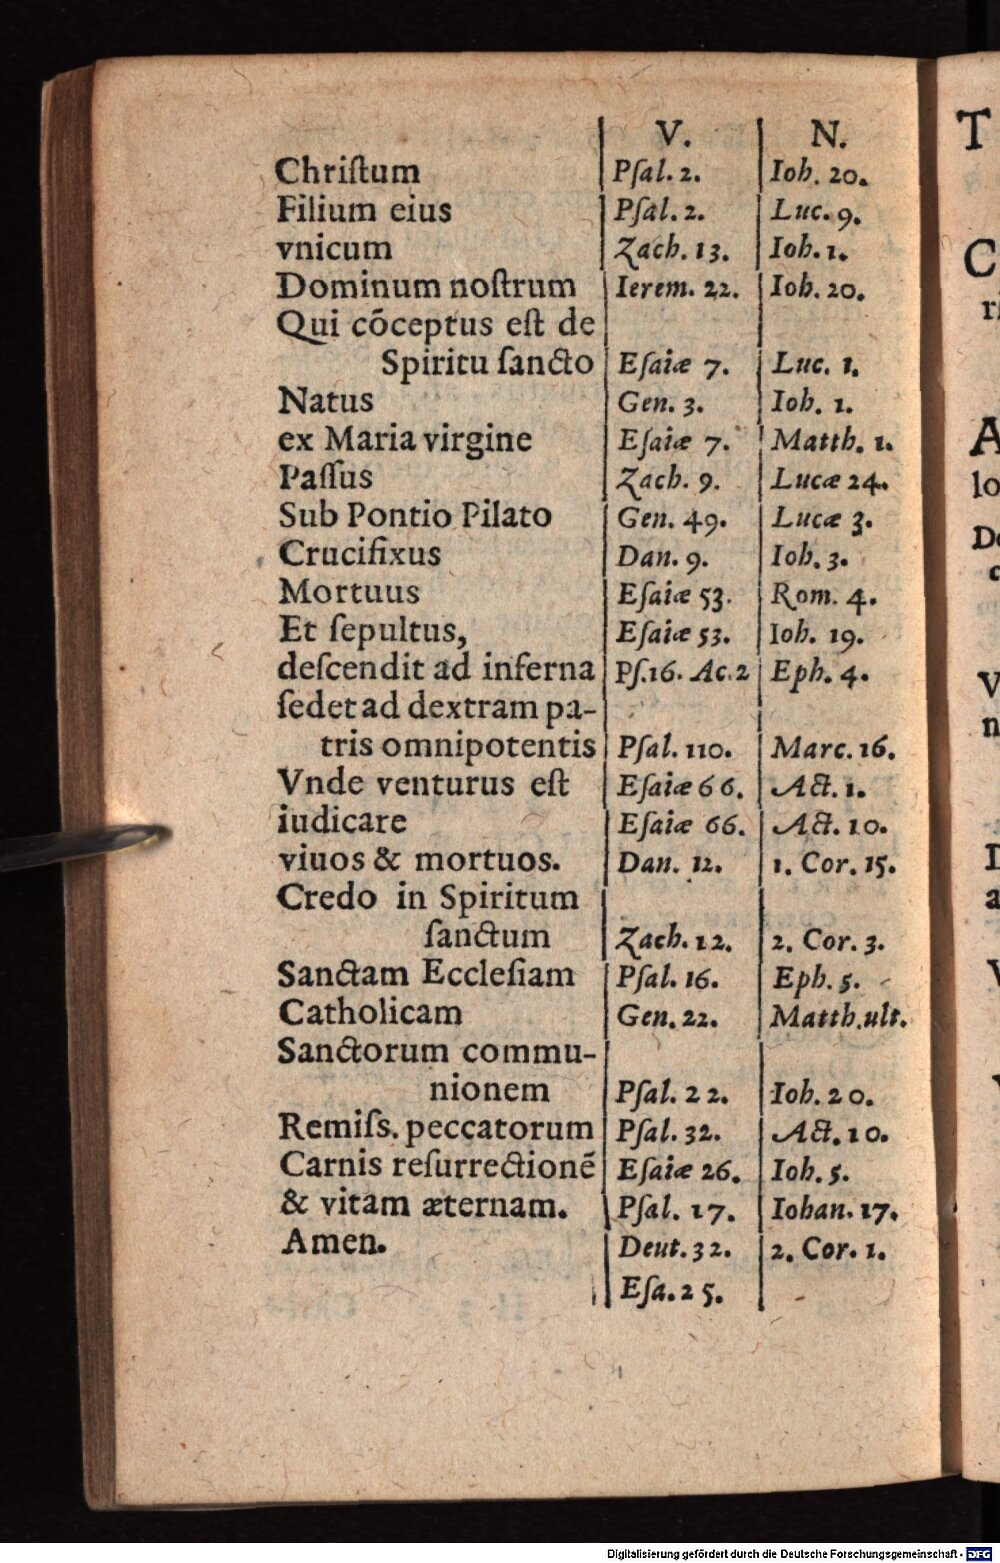 V. N.
Chriſtum Pſal. 2. Ioh. 20.
Filium eius Pſal. 2. Luc. 9.
vnicum Zach. 13. Ioh. 1.
Dominum noſtrum Ierem. 22. Ioh. 20.
Qui cōceptus eſt de
Spiritu ſancto Eſaiæ 7. Luc. 1.
Natus Gen. 3. Ioh. 1.
ex Maria virgine Eſaiæ 7. Matth. 1.
Paſſus Zach. 9. Lucæ 24.
Sub Pontio Pilato Gen. 49. Lucæ 3.
Crucifixus Dan. 9. Ioh. 3.
Mortuus Eſaiæ 53. Rom. 4.
Et ſepultus, Eſaiæ 53. Ioh. 19.
deſcendit ad inferna Pſ.16. Ac.2 Eph. 4.
ſedet ad dextram pa-
tris omnipotentis Pſal. 110. Marc. 16.
Vnde venturus eſt Eſaiæ 66. Act. 1.
iudicare Eſaiæ 66. Act. 10.
viuos & mortuos. Dan. 12. 1. Cor. 15.
Credo in Spiritum
ſanctum Zach. 12. 2. Cor. 3.
Sanctam Eccleſiam Pſal. 16. Eph. 5.
Catholicam Gen. 22. Matth. ult.
Sanctorum commu-
nionem Pſal. 22. Ioh. 20.
Remiſs. peccatorum Pſal. 32. Act. 10.
Carnis reſurrectionē Eſaiæ 26. Ioh. 5.
& vitam æternam. Pſal. 17. Iohan. 17.
Amen. Deut. 32. 2. Cor. 1.
Eſa. 25.
Digitalisierung gefördert durch die Deutsche Forschungsgemeinschaft - DFG